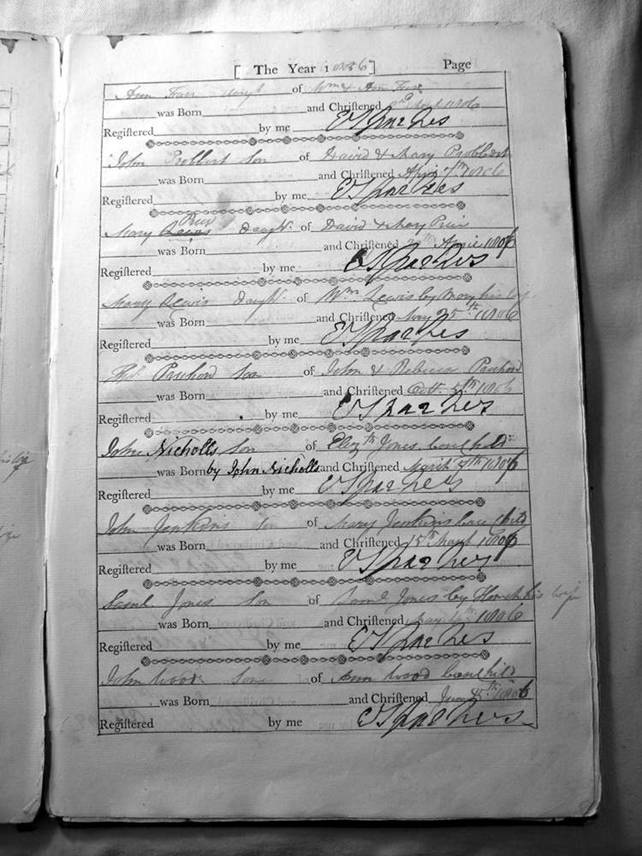 [ The Year 1806 ] Page
Ann daugh of Wm & Ann
was Born and Chriſtened 1806
Regiſtered by me E Sparkes
John Probbert Son of David & Mary Probbert
was Born and Chriſtened April 7th 1806
Regiſtered by me E Sparkes
Mary Daught. of David & Mary
was Born and Chriſtened 1806
Regiſtered by me E Sparkes
Mary Lewis Daught. of Wm. Lewis by Mary his
was Born and Chriſtened May 25th 1806
Regiſtered by me E Sparkes
Son of John & Rebecca
was Born and Chriſtened Octr. 5th 1806
Regiſtered by me E Sparkes
John Nicholls Son of Elizth Jones
was Born by John Nicholls and Chriſtened March 1806
Regiſtered by me E Sparkes
John Jenkins Son of Mary Jenkins base child
was Born and Chriſtened 15th 1806
Regiſtered by me E Sparkes
Saml Jones Son of Saml Jones by his wife
was Born and Chriſtened May 1806
Regiſtered by me E Sparkes
John Wood Son of Ann Wood
was Born and Chriſtened 1806
Regiſtered by me E Sparkes